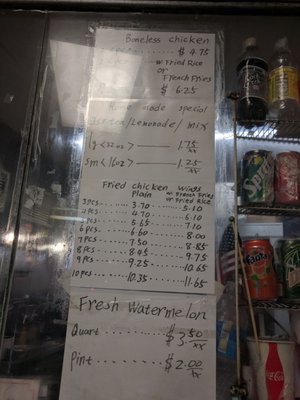 Boneless chicken
$ 4.75
w Fried Rice
or
French Fries
$ 6.25
Home made special
Ice tea/Lemonade/ mix
lg <32oz> 1.75 xx
sm <16oz> 1.25 xx
Fried chicken wings
plain w French Fries
or Fried Rice
3 pcs ... 3.70 ...... 5.10
4 pcs .... 4.70 ...... 6.10
5 pcs .... 5.65 ...... 7.10
6 pcs .... 6.60 ...... 8.00
7 pcs .... 7.50 ...... 8.85
8 pcs .... 8.45 ...... 9.75
9 pcs .... 9.25 ...... 10.65
10 pcs .... 10.35 ..... 11.65
Fresh Watermelon
Quart ......... $ 3.50 xx
Pint ......... $ 2.00 xx
Sprite
Fanta
Coca-Cola